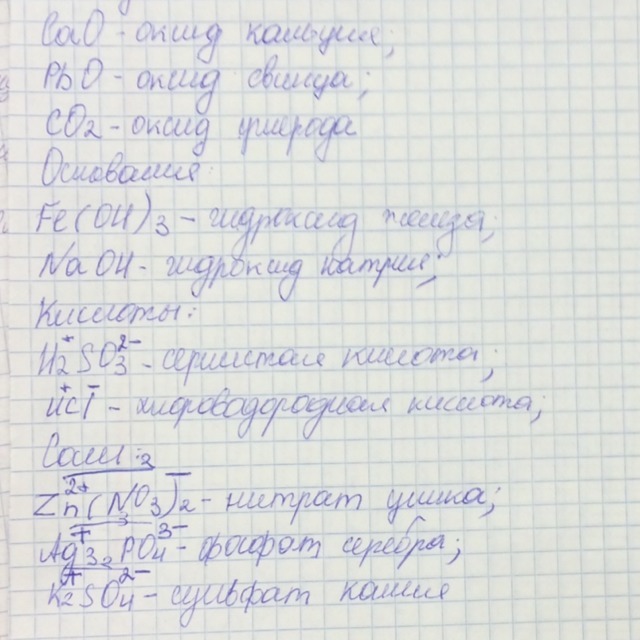 CaO - оксид кальция;
PbO - оксид свинца;
CO2 - оксид углерода
Основания:
Fe(OH)3 - гидроксид железа;
NaOH - гидроксид натрия;
Кислоты:
H2+SO3 2- - сернистая кислота;
H+Cl- - хлороводородная кислота;
Соли:
Zn2+(NO3)2- - нитрат цинка;
Ag3+PO4 3- - фосфат серебра;
K2+SO4 2- - сульфат калия